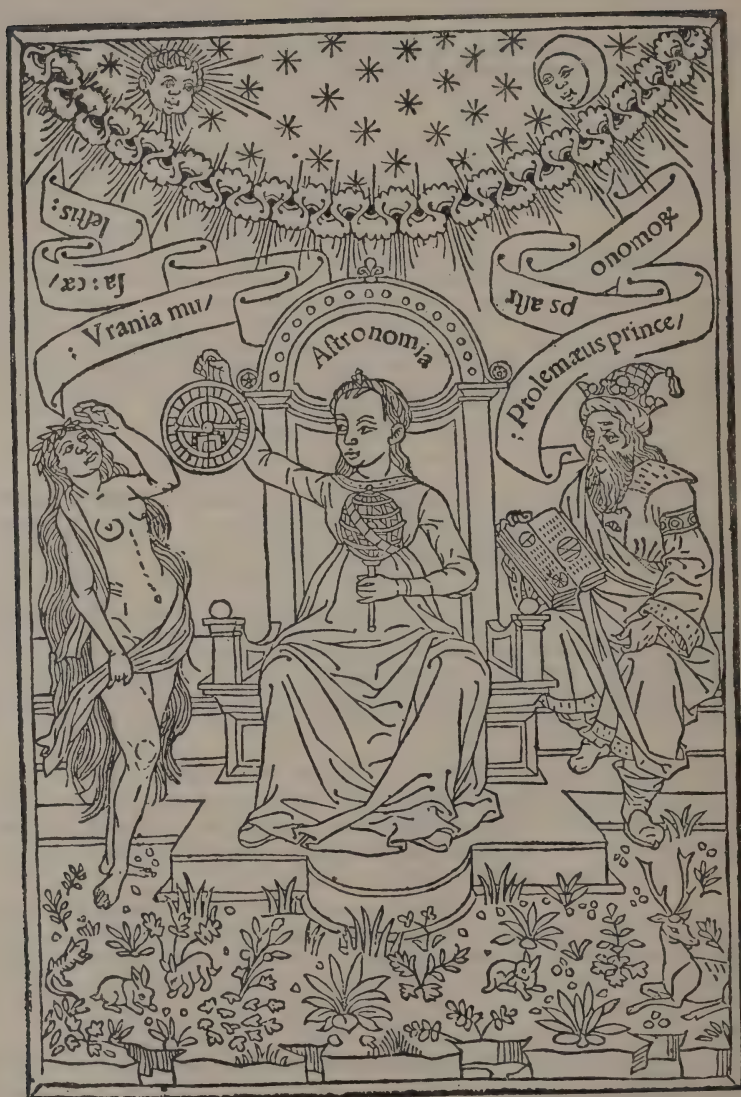 : Vrania mu/
ſa : cæ/
leſtis :
Aſtronomia
: Ptolemæus prince/
ps aſtr
onomoꝝ